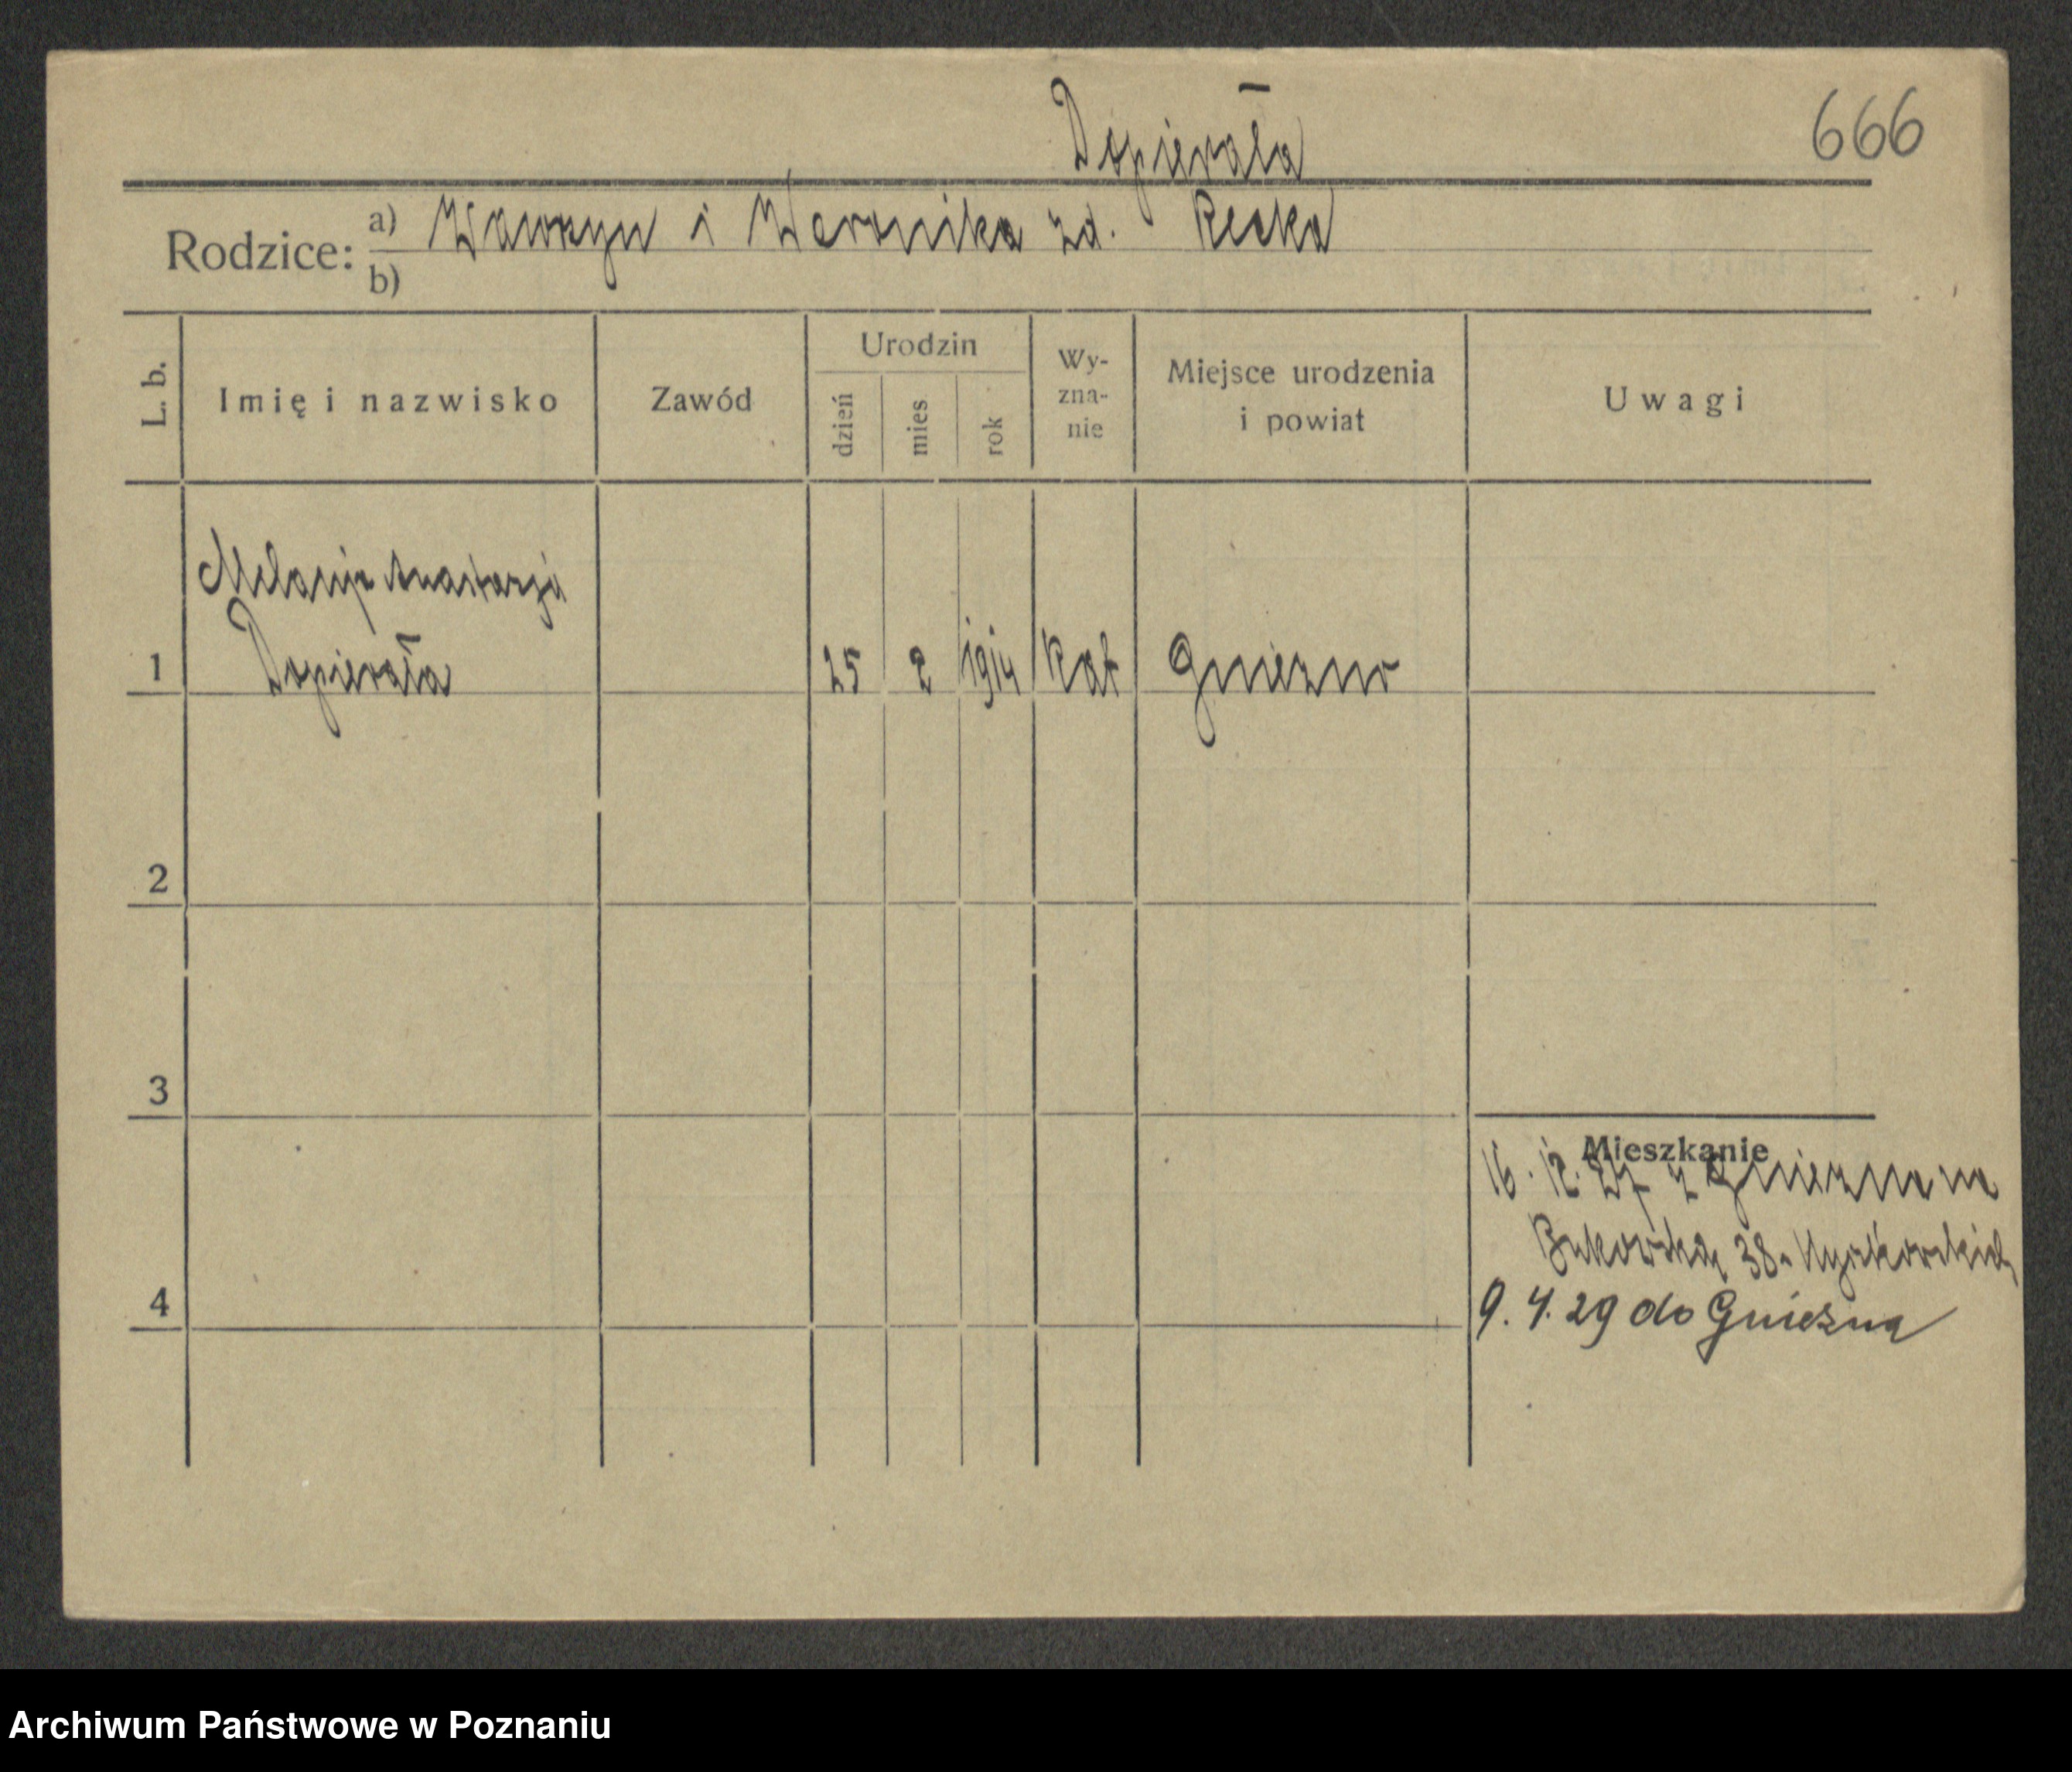 Dopierała
666
Rodzice: a) Wawrzyn i Weronika zd. Reska
b)
L. b. Imię i nazwisko Zawód Urodzin dzień mies rok Wy-zna-nie Miejsce urodzenia i powiat Uwagi
Melanja Anastazja
1 Dopierała 25 2 1914 Kat Gniezno
2
3
Mieszkanie
16. 12. 27 z Gniezna na
Bukowska 38
4
9. 4. 29 do Gniezna
Archiwum Państwowe w Poznaniu